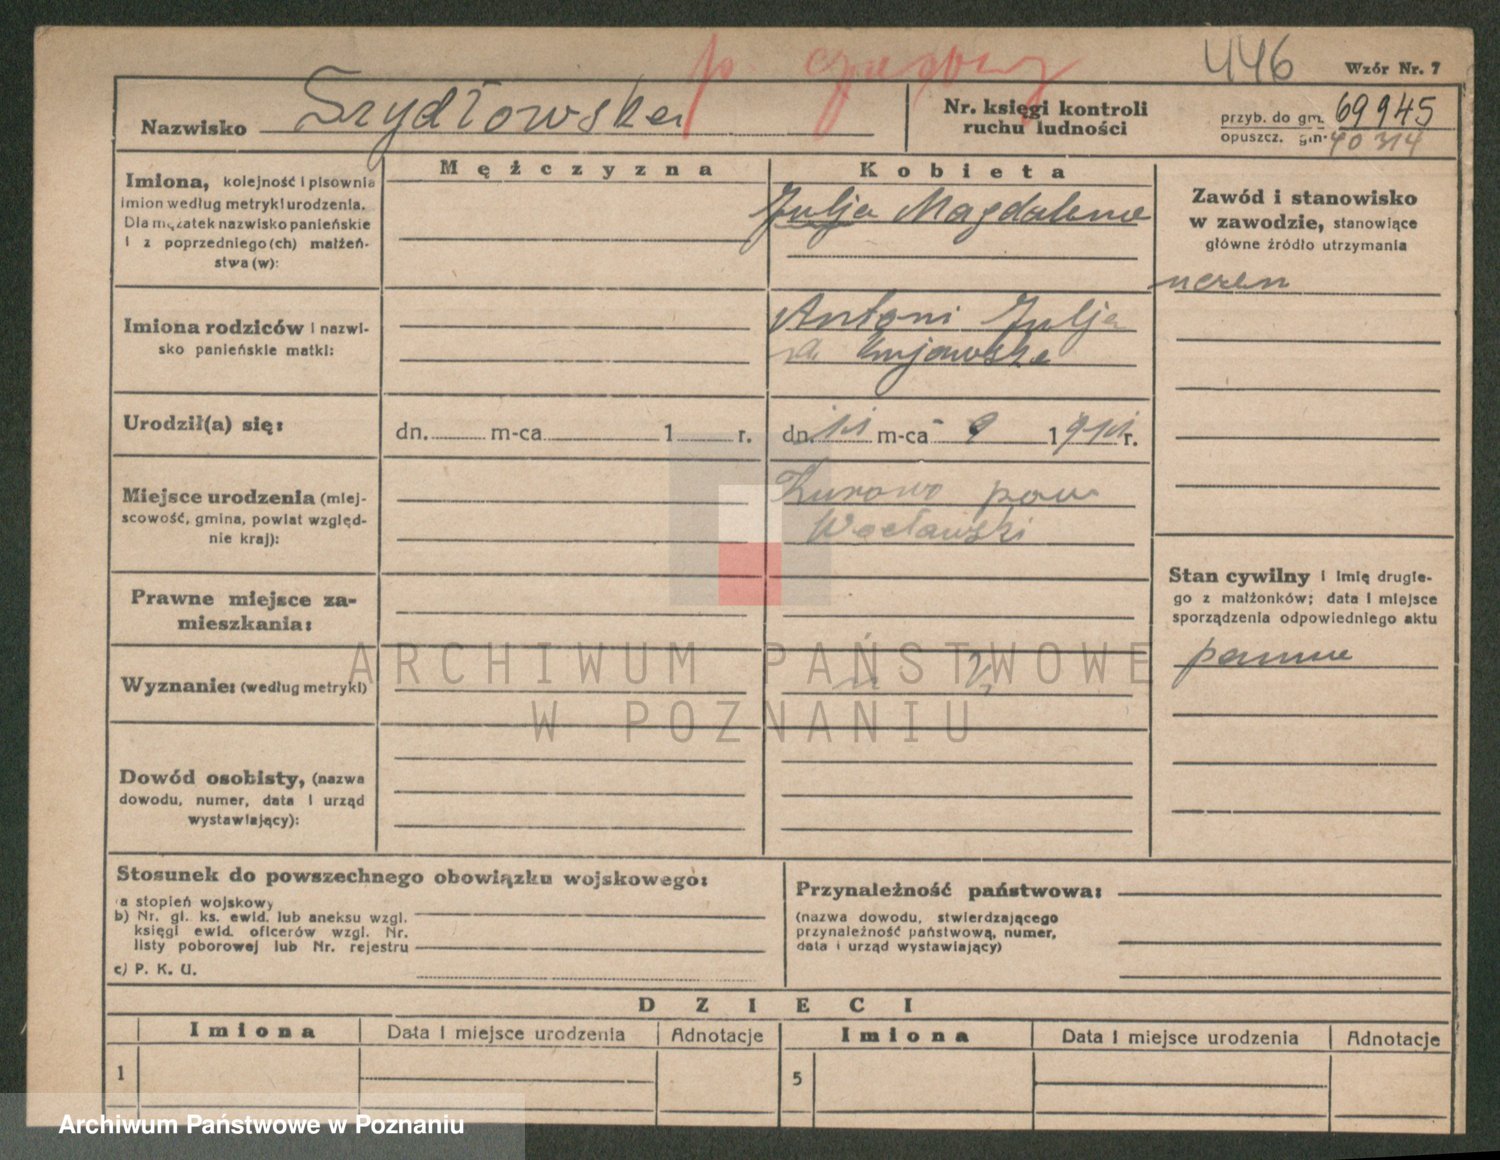 446
Wzór Nr. 7
Nazwisko Szydłowska
Nr. księgi kontroli
ruchu ludności
przyb. do gm. 69945
opuszcz. gm. 40314
Mężczyzna
Kobieta
Imiona, kolejność i pisownia
imion według metryki urodzenia.
Dla mężatek nazwisko panieńskie
i z poprzedniego(ch) małżeń-
stwa(w):
Julja Magdalena
Zawód i stanowisko
w zawodzie, stanowiące
główne źródło utrzymania
uczen
Imiona rodziców i nazwi-
sko panieńskie matki:
Antoni Julja
Kujawska
Urodził(a) się:
dn. m-ca 1 r.
dn. 11 m-ca 9 1911 r.
Miejsce urodzenia (miej-
scowość, gmina, powiat względ-
nie kraj):
Kurowo pow
Wocławski
Stan cywilny i imię drugie-
go z małżonków; data i miejsce
sporządzenia odpowiedniego aktu
panna
Prawne miejsce za-
mieszkania:
Wyznanie: (według metryki)
Dowód osobisty, (nazwa
dowodu, numer, data i urząd
wystawiający):
ARCHIWUM PAŃSTWOWE
W POZNANIU
Stosunek do powszechnego obowiązku wojskowego:
a stopień wojskowy
b) Nr. gl. ks. ewid. lub aneksu wzgl.
księgi ewid. oficerów wzgl. Nr.
listy poborowej lub Nr. rejestru
c) P. K. U.
Przynależność państwowa:
(nazwa dowodu, stwierdzającego
przynależność państwową, numer,
data i urząd wystawiający)
DZIECI
Imiona Data i miejsce urodzenia Adnotacje Imiona Data i miejsce urodzenia Adnotacje
1 5
Archiwum Państwowe w Poznaniu